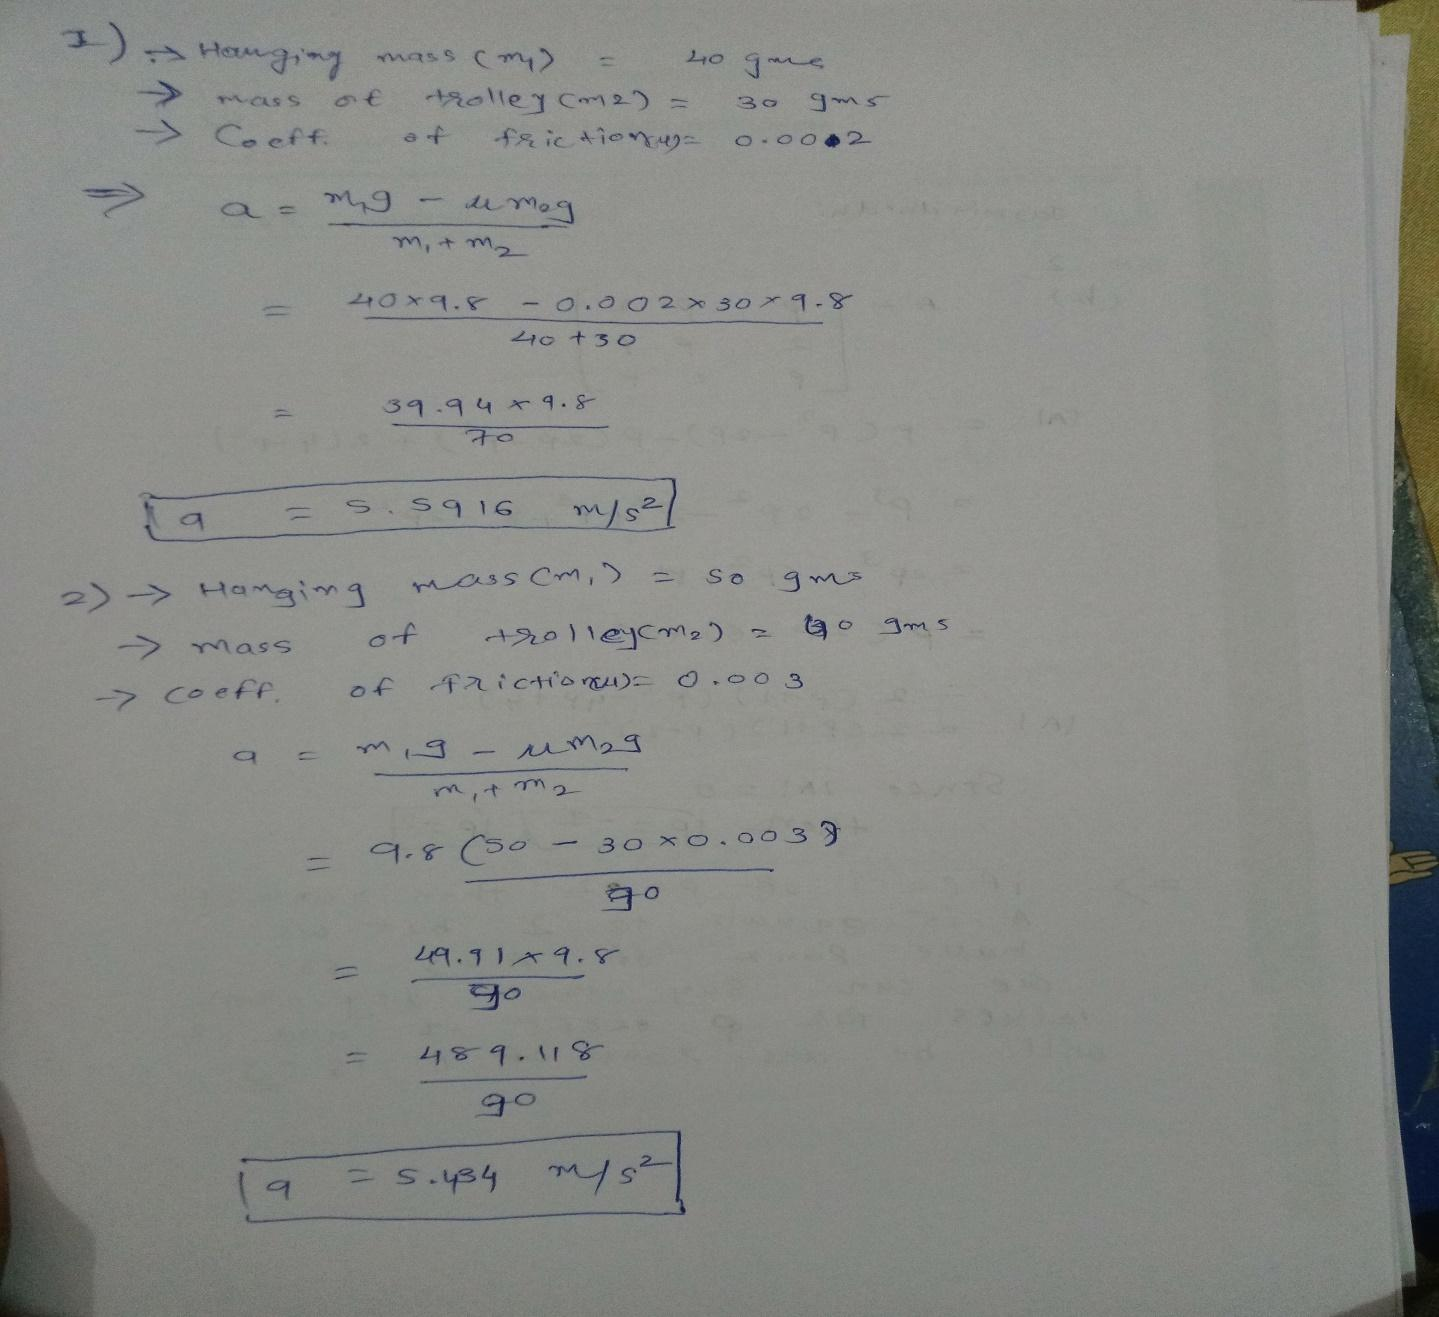 1) → Hanging mass (m₁) = 40 gms
→ mass of trolley (m2) = 30 gms
→ Coeff. of friction(μ)= 0.002
⇒ a = m₁g - μm₂g
m₁+m₂
= 40×9.8 - 0.002×30×9.8
40+30
= 39.94×9.8
70
a = 5.5916 m/s²
2) → Hanging mass (m₁) = 50 gms
→ mass of trolley(m₂) = 40 gms
→ coeff. of friction(μ)= 0.003
a = m₁g - μm₂g
m₁+m₂
= 9.8 (50 - 30×0.003)
90
= 49.91×9.8
90
= 489.118
90
a = 5.434 m/s²